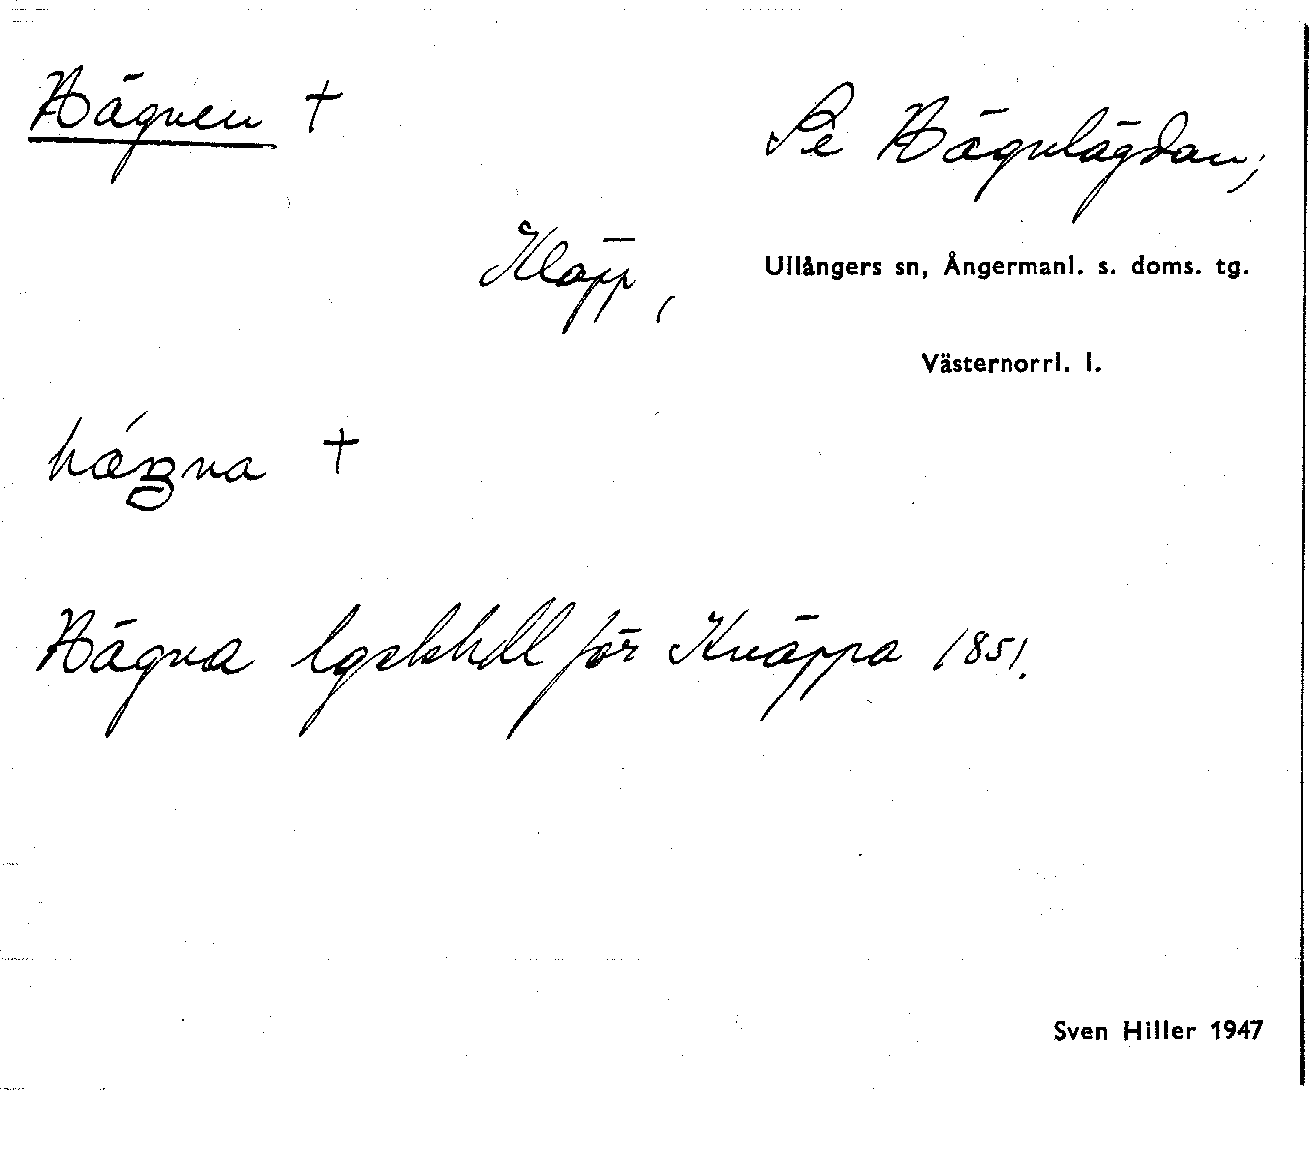 Hägnen †
Se Hägnlägdan,
Kläpp,
Ullångers sn, Ångermanl. s. doms. tg.
Västernorrl. l.
†
Hägna lgsbhll för Knäppa 1851.
Sven Hiller 1947